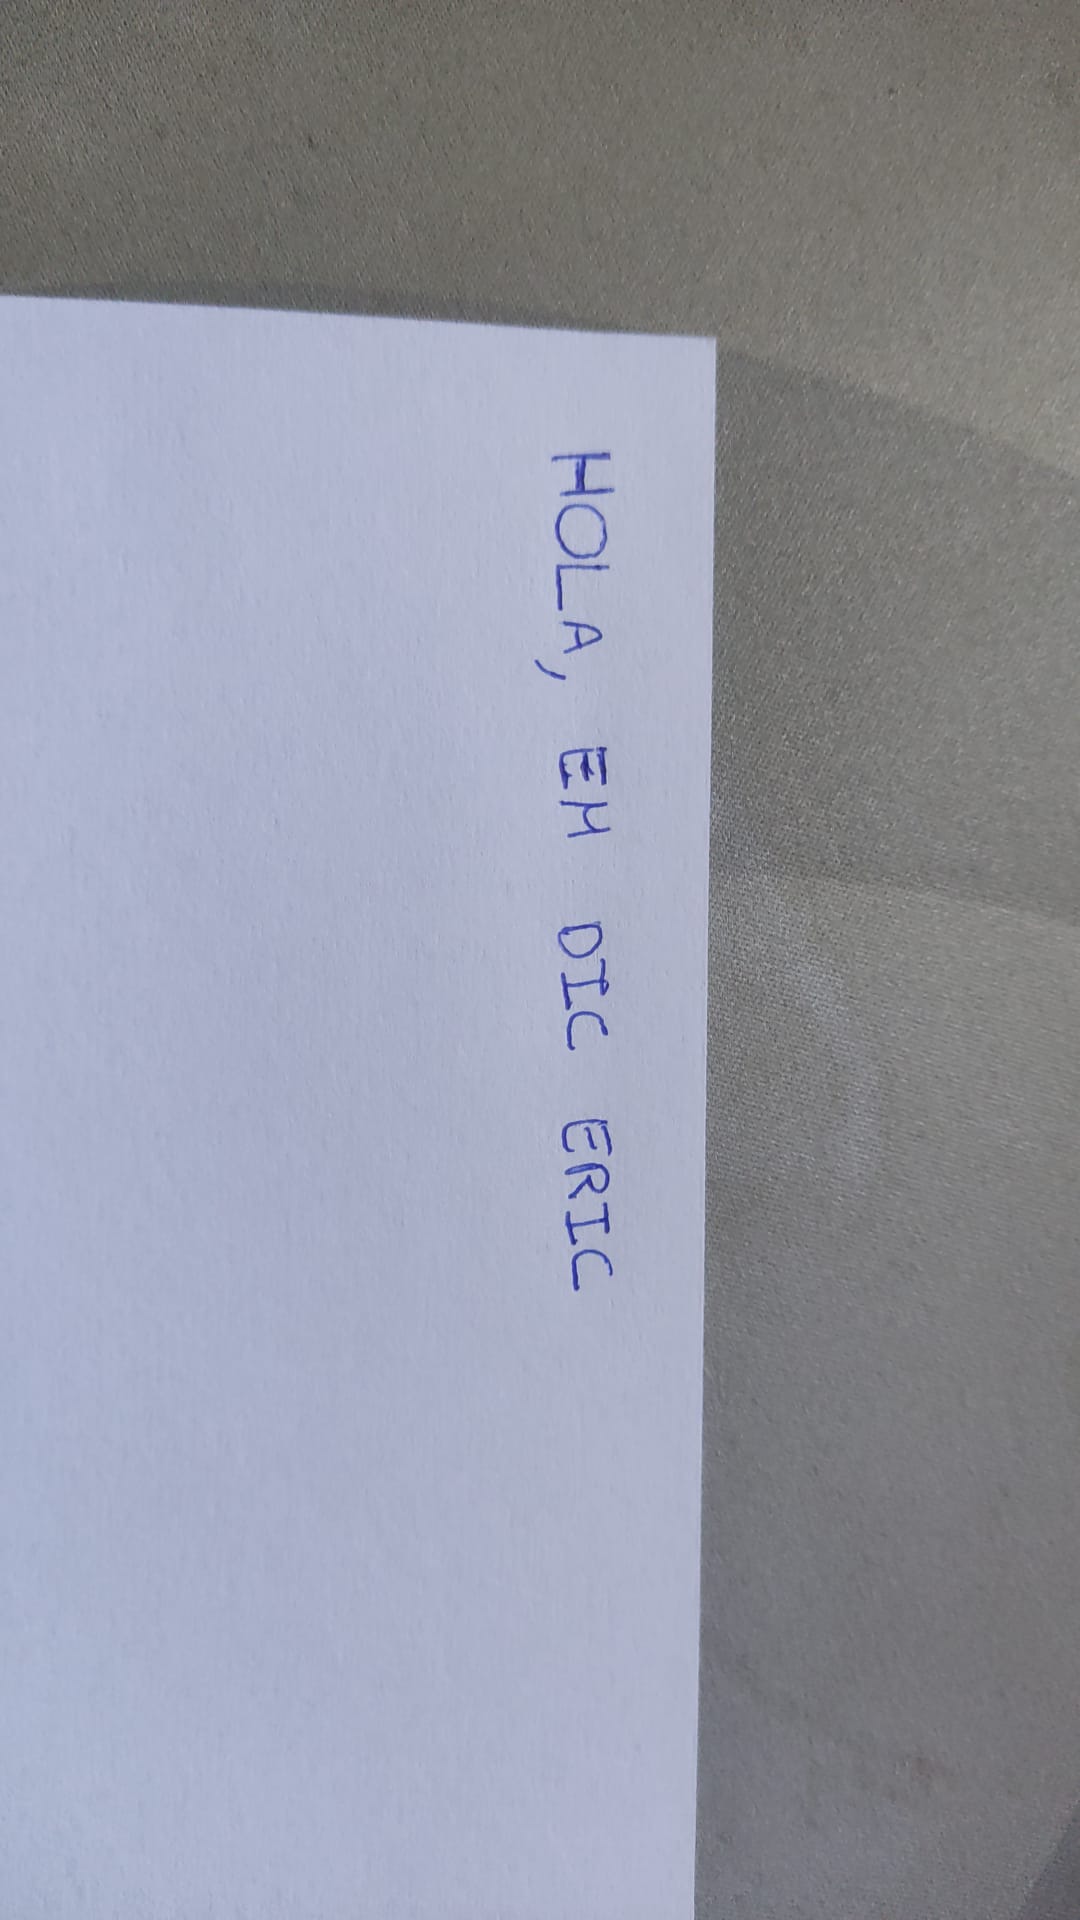 HOLA, EM DIC ERIC